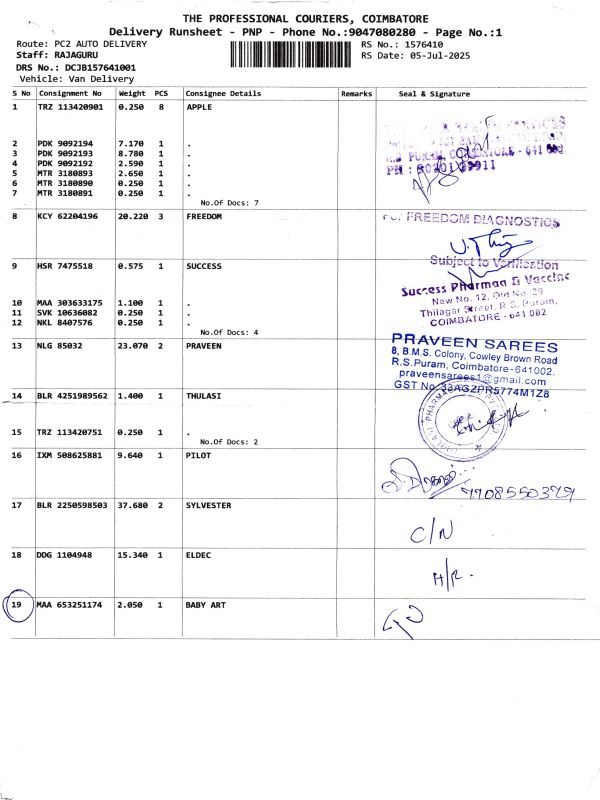 THE PROFESSIONAL COURIERS, COIMBATORE
Delivery Runsheet - PNP - Phone No.:9047080280 - Page No.:1
Route: PC2 AUTO DELIVERY RS No.: 1576410
Staff: RAJAGURU RS Date: 05-Jul-2025
DRS No.: DCJB157641001
Vehicle: Van Delivery
S No Consignment No Weight PCS Consignee Details Remarks Seal & Signature
1 TRZ 113420901 0.250 8 APPLE
2 PDK 9092194 7.170 1 .
3 PDK 9092193 8.780 1 .
4 PDK 9092192 2.590 1 .
5 MTR 3180893 2.650 1 .
6 MTR 3180890 0.250 1 .
7 MTR 3180891 0.250 1 .
No.Of Docs: 7
R.S PURAM, COIMBATORE - 641 002
8 KCY 62204196 20.220 3 FREEDOM
For FREEDOM DIAGNOSTICS
9 HSR 7475518 0.575 1 SUCCESS
Subject to Verification
Success Pharmaa & Vaccine
New No. 12, Old No. 29
Thilagar Street, R.S. Puram,
COIMBATORE - 641 002
10 MAA 303633175 1.100 1 .
11 SVK 10636082 0.250 1 .
12 NKL 8407576 0.250 1 .
No.Of Docs: 4
13 NLG 85032 23.070 2 PRAVEEN
PRAVEEN SAREES
8, B.M.S. Colony, Cowley Brown Road
R.S.Puram, Coimbatore-641002.
praveensarees1@gmail.com
GST No. 33AGZPR5774M1Z8
14 BLR 4251989562 1.400 1 THULASI
15 TRZ 113420751 0.250 1 .
No.Of Docs: 2
16 IXM 508625881 9.640 1 PILOT
9708550379
17 BLR 2250598503 37.680 2 SYLVESTER
C/N
18 DDG 1104948 15.340 1 ELDEC
H/R.
19 MAA 653251174 2.050 1 BABY ART